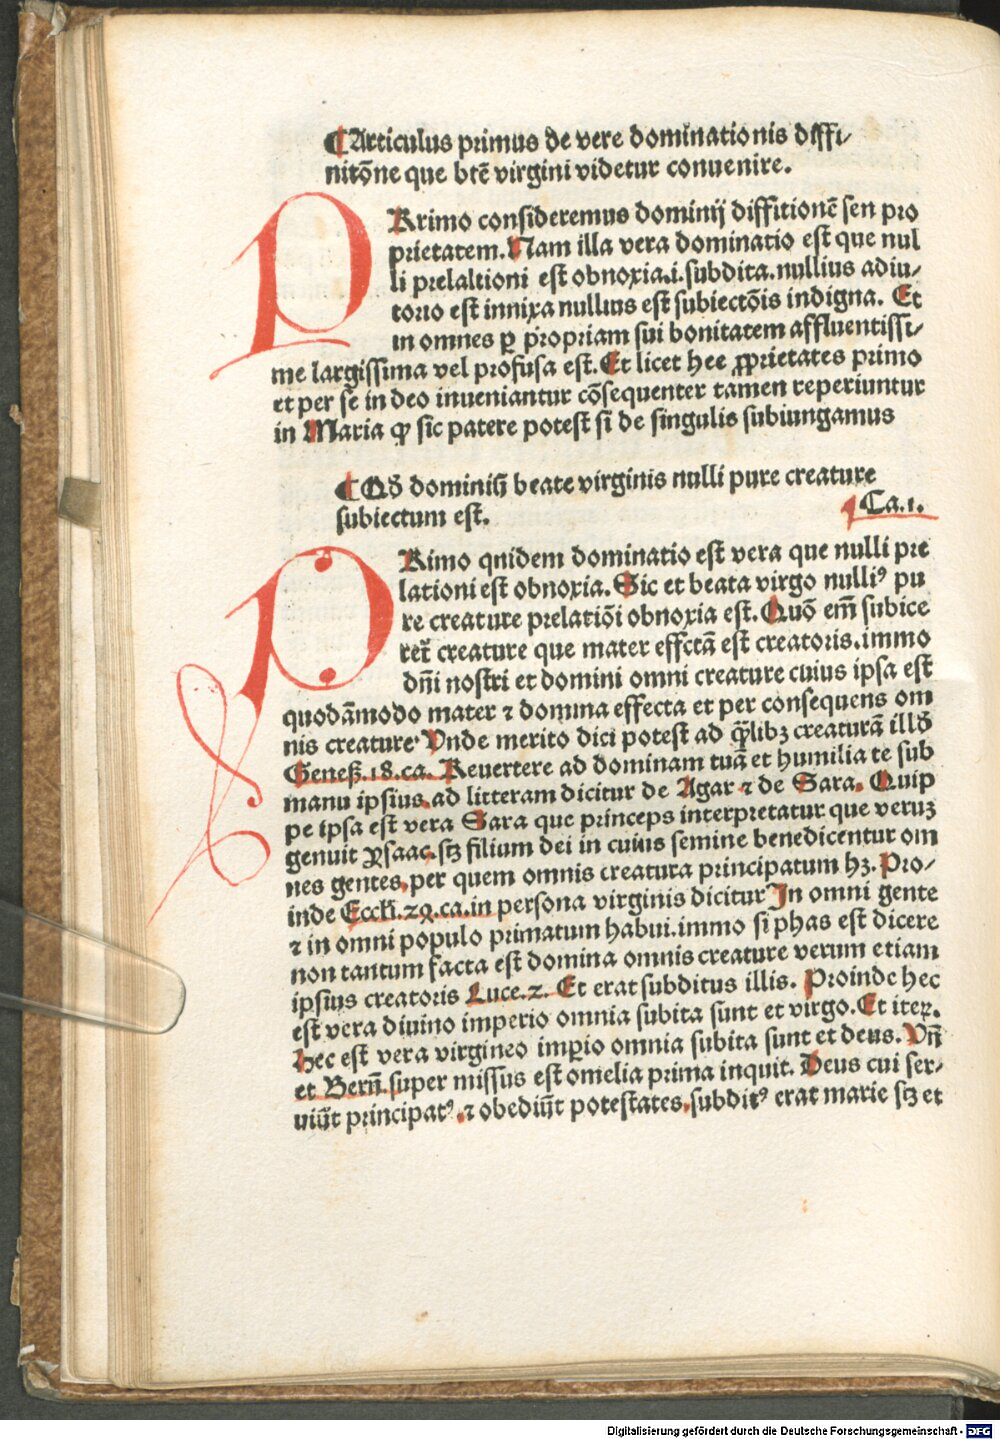 ¶Articulus primus de vere dominationis diffi-
nitōne que btē virgini videtur conuenire.
PRrimo consideremus dominij diffitionē sen pro
prietatem. Nam illa vera dominatio est que nul
li prelaltioni est obnoxia.i.subdita.nullius adiu-
torio est innixa nullius est subiectōis indigna. Et
in omnes ꝑ propriam sui bonitatem affluentissi-
me largissima vel profusa est. Et licet hee ꝓprietates primo
et per se in deo inueniantur cōsequenter tamen reperiuntur
in Maria ꝙ sic patere potest si de singulis subiungamus
¶Qd̄ dominiū beate virginis nulli pure creature
subiectum est.
¶Ca.1.
PRimo qnidem dominatio est vera que nulli pre
lationi est obnoxia. Sic et beata virgo nulliꝰ pu
re creature prelatiōi obnoxia est. Quō em̄ subice
ret̄ creature que mater effctā est creatoris.immo
dn̄i nostri et domini omni creature cuius ipsa est
quodāmodo mater ⁊ domina effecta et per consequens om
nis creature. Vnde merito dici potest ad q̄libꝫ creaturā illd̄
Geneß.18.ca. Reuertere ad dominam tuā et humilia te sub
manu ipsius.ad litteram dicitur de Agar ⁊ de Sara. Quip
pe ipsa est vera Sara que princeps interpretatur que veruꝫ
genuit Ysaac.stꝫ filium dei in cuius semine benedicentur om
nes gentes.per quem omnis creatura principatum hꝫ. Pro-
inde Eccli.29.ca.in persona virginis dicitur In omni gente
⁊ in omni populo primatum habui.immo si phas est dicere
non tantum facta est domina omnis creature verum etiam
ipsius creatoris Luce.2. Et erat subditus illis. Proinde hec
est vera diuino imperio omnia subita sunt et virgo. Et iteꝝ.
Hec est vera virgineo imꝑio omnia subita sunt et deus. Vn̄
et Bern̄.super missus est omelia prima inquit. Deus cui ser-
uiūt principatꝰ.⁊ obediūt potestates.subditꝰ erat marie stꝫ et
Digitalisierung gefördert durch die Deutsche Forschungsgemeinschaft - DFG